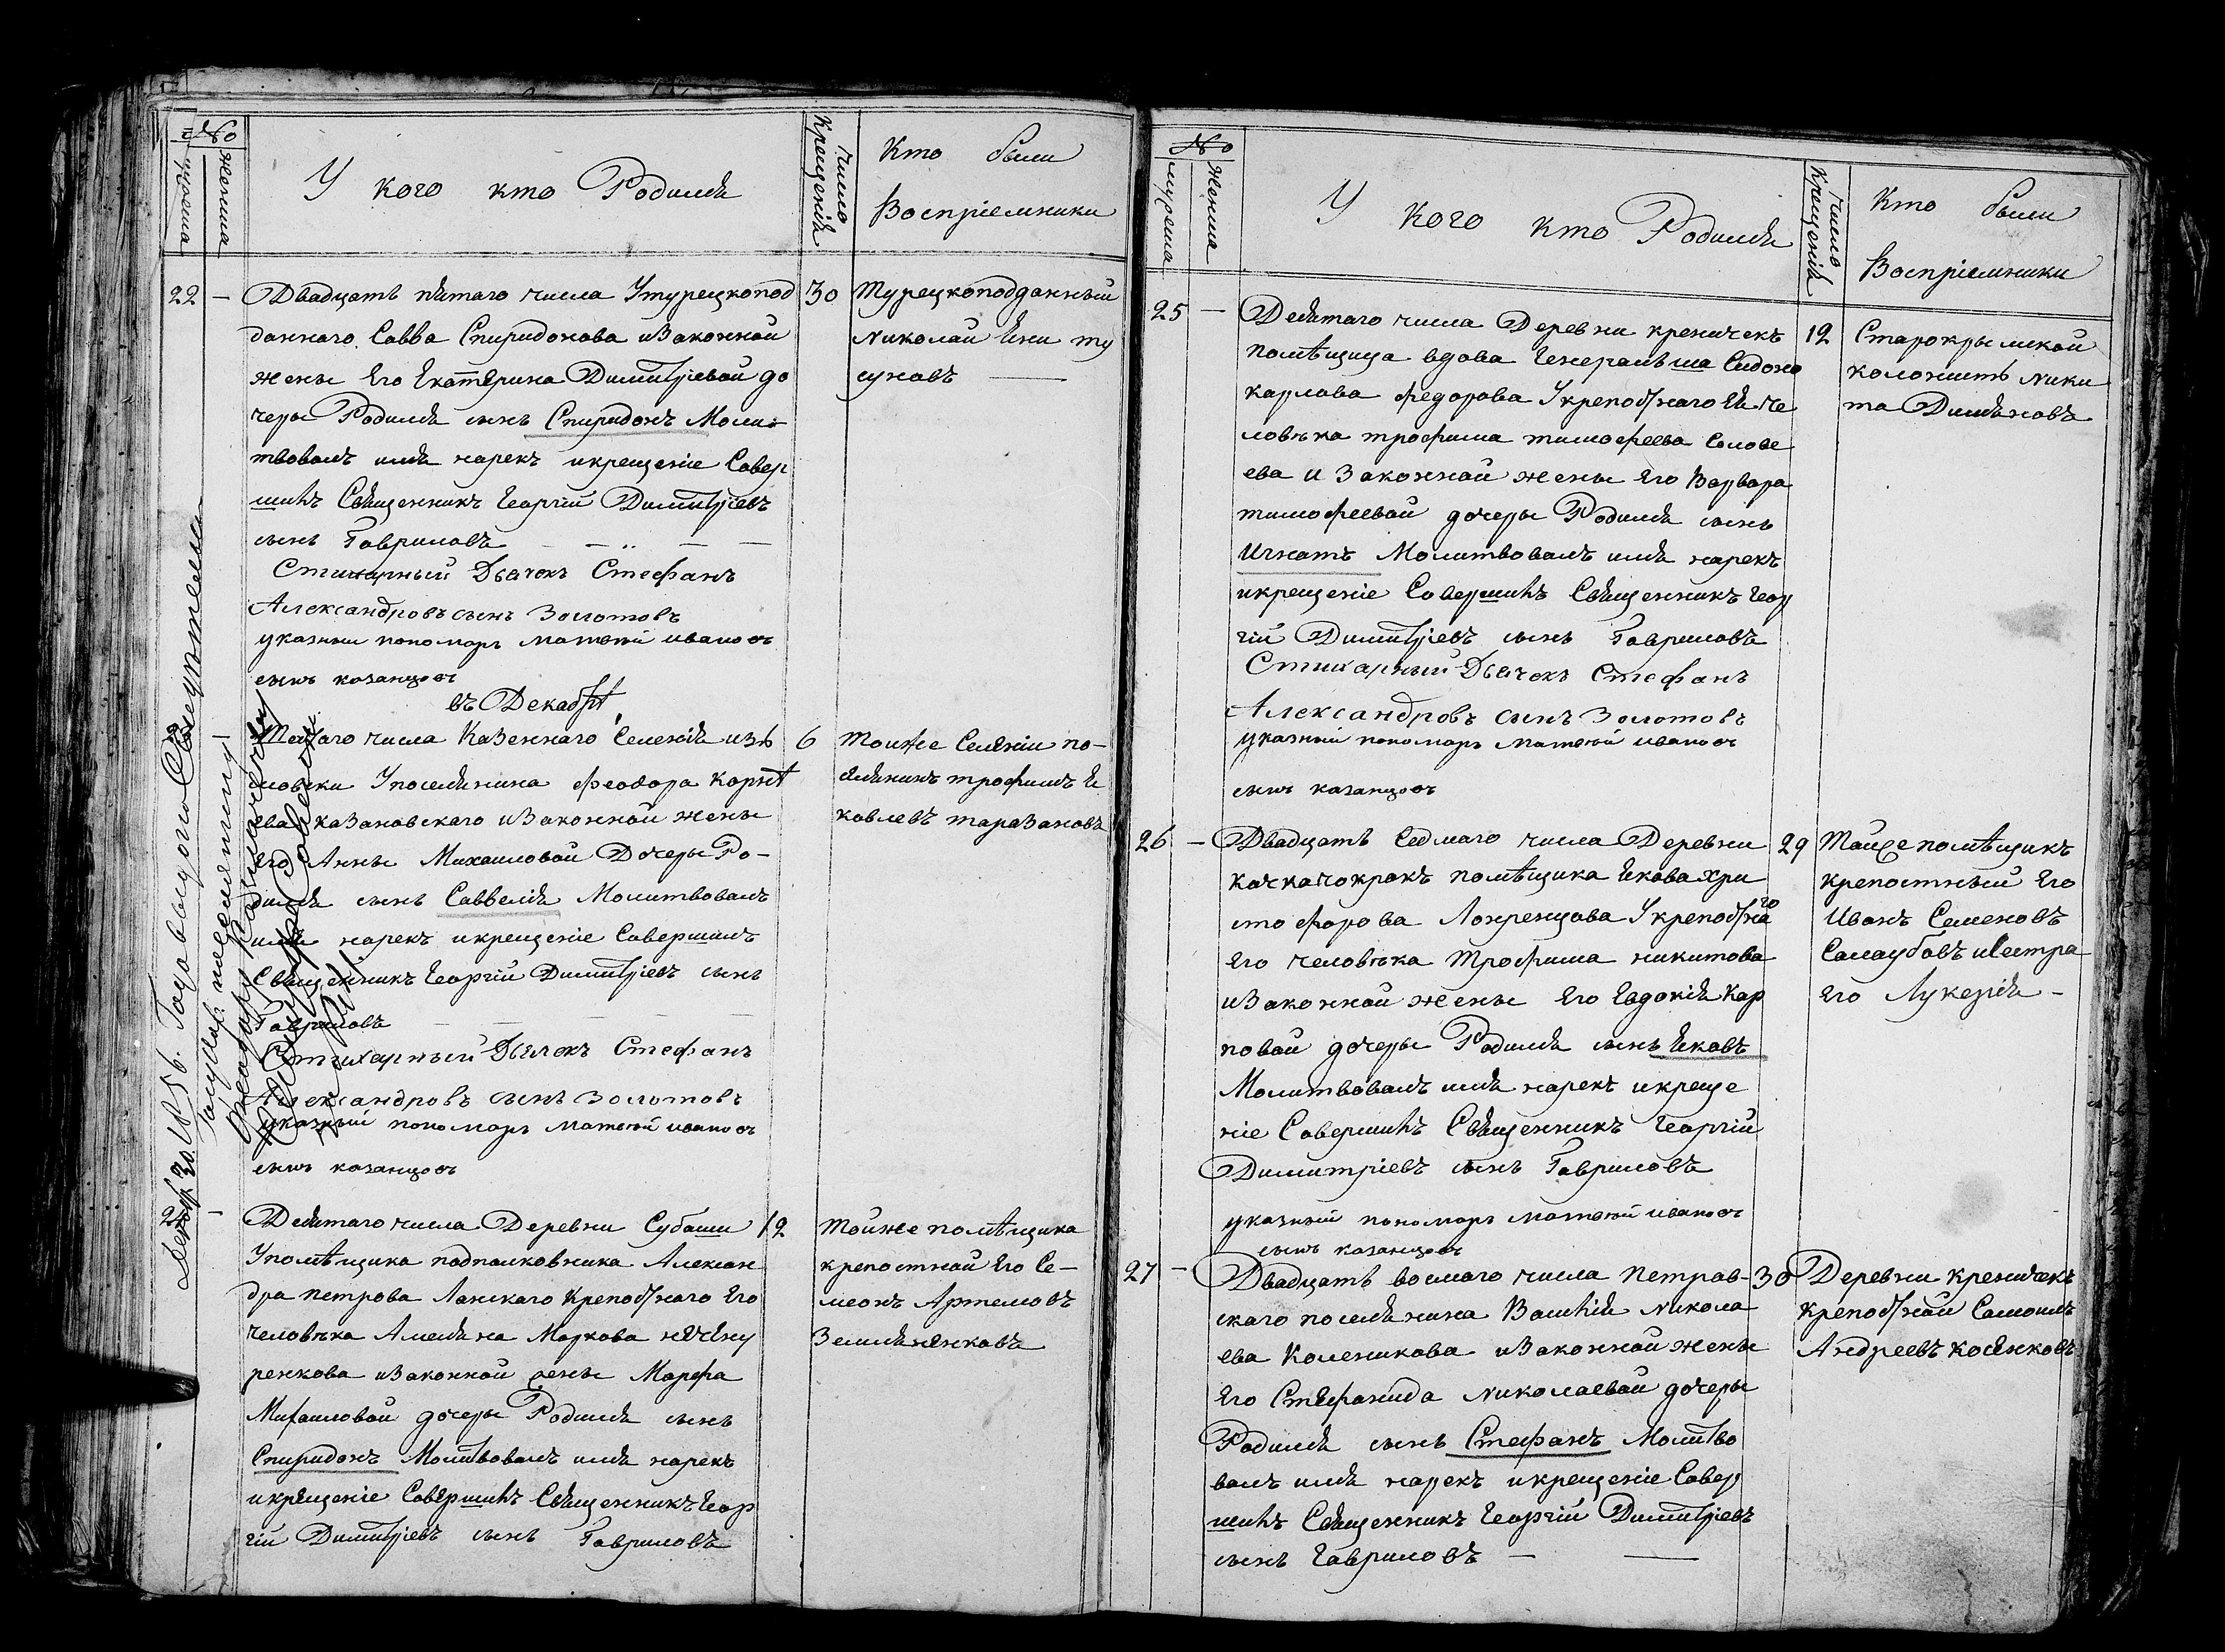 №
мужеска
женска
У кого кто Родился
число
Крещенія
Кто были
Воспріемники
22 — Двадцать пятаго числа Утурецкопод
даннаго Савва Спиридонова изаконной
жены Его Екатерина Димитріевой до
черы Родился сынъ Спиридонъ Моли-
твовалъ имя нарекъ икрещеніе Совер
шилъ Священникъ Георгій Димитріевъ
сынъ Гавриловъ
Стихарный Дьячокъ Стефанъ
Александровъ сынъ Золотовъ
указный пономарь Матвей ивановъ
сынъ казанцовъ
30
Турецкоподданный
Николай
суновъ
въ Декабрѣ
числа Казеннаго Селенія изю
мовски Упоселянина Феодора Корнѣ
ева казановскаго изаконной жены
Его Анны Михаиловой Дочеры Ро-
дился сынъ Саввелія Молитвовалъ
имя нарекъ икрещеніе Совершилъ
Священникъ Георгій Димитріевъ сынъ
Гавриловъ
Стихарный Дьячокъ Стефанъ
Александровъ сынъ Золотовъ
указный пономарь Матвей ивановъ
сынъ казанцовъ
6
тоиже Селѣніи по-
селянинъ трофимъ Я
ковлевъ таразановъ
Девятаго числа Деревни Субаши
Упомѣщика подполковника Алексан
дра петрова Ланскаго Крепостнаго Его
человѣка Амеляна Маркова
ренкова изаконной жены Марфа
Михаиловой дочеры Родился сынъ
Спиридонъ Молитвовалъ имя нарекъ
икрещеніе Совершилъ Священникъ Геор
гій Димитріевъ сынъ Гавриловъ
12
тойже помѣщика
крепостной Его Се-
меонъ Артемовъ
Землянянковъ
30 1856. Года
№
мужеска
женска
У кого кто Родился
число
Крещенія
Кто были
Воспріемники
25 — Девятаго числа Деревни креничекъ
помѣщица вдова Генеральша Сидоно
карлова федорова Укрепостнаго Ея че
ловѣка трофима тимофеева Солове
ева и Законной жены Его Варвара
тимофеевой дочеры Родился сынъ
Игнатъ Молитвовалъ имя нарекъ
икрещеніе Совершилъ Священникъ Геор
гій Димитріевъ сынъ Гавриловъ
Стихарный Дьячокъ Стефанъ
Александровъ сынъ Золотовъ
указный пономарь Матвей ивановъ
сынъ казанцовъ
12
Старокрымской
колонистъ Ники
та Димяновъ
26 — Двадцать Седмаго числа Деревни
качкачокракъ помѣщика Якова хри
стофорова Лоренцова Укрепостнаго
Его человѣка Трофима никитова
изаконной жены Его Евдокія Кар
повой дочеры Родился сынъ Яковъ
Молитвовалъ имя нарекъ икреще
ніе Совершилъ Священникъ Георгій
Димитріевъ сынъ Гавриловъ
указный пономарь Матвей ивановъ
сынъ казанцовъ
29
помѣщикъ
крепостный Его
Иванъ Семеновъ
исестра
Его Лукерія —
27 — Двадцать восмаго числа петров-
скаго поселянина Василія Никола
ева Коленикова изаконной жены
Его Стефанида Николаевой дочеры
Родился сынъ Стефанъ Молитво
валъ имя нарекъ икрещеніе Совер
шилъ Священникъ Георгій Димитріевъ
сынъ Гавриловъ —
30
Деревни креничекъ
крепостной Самоилъ
Андреевъ косянковъ